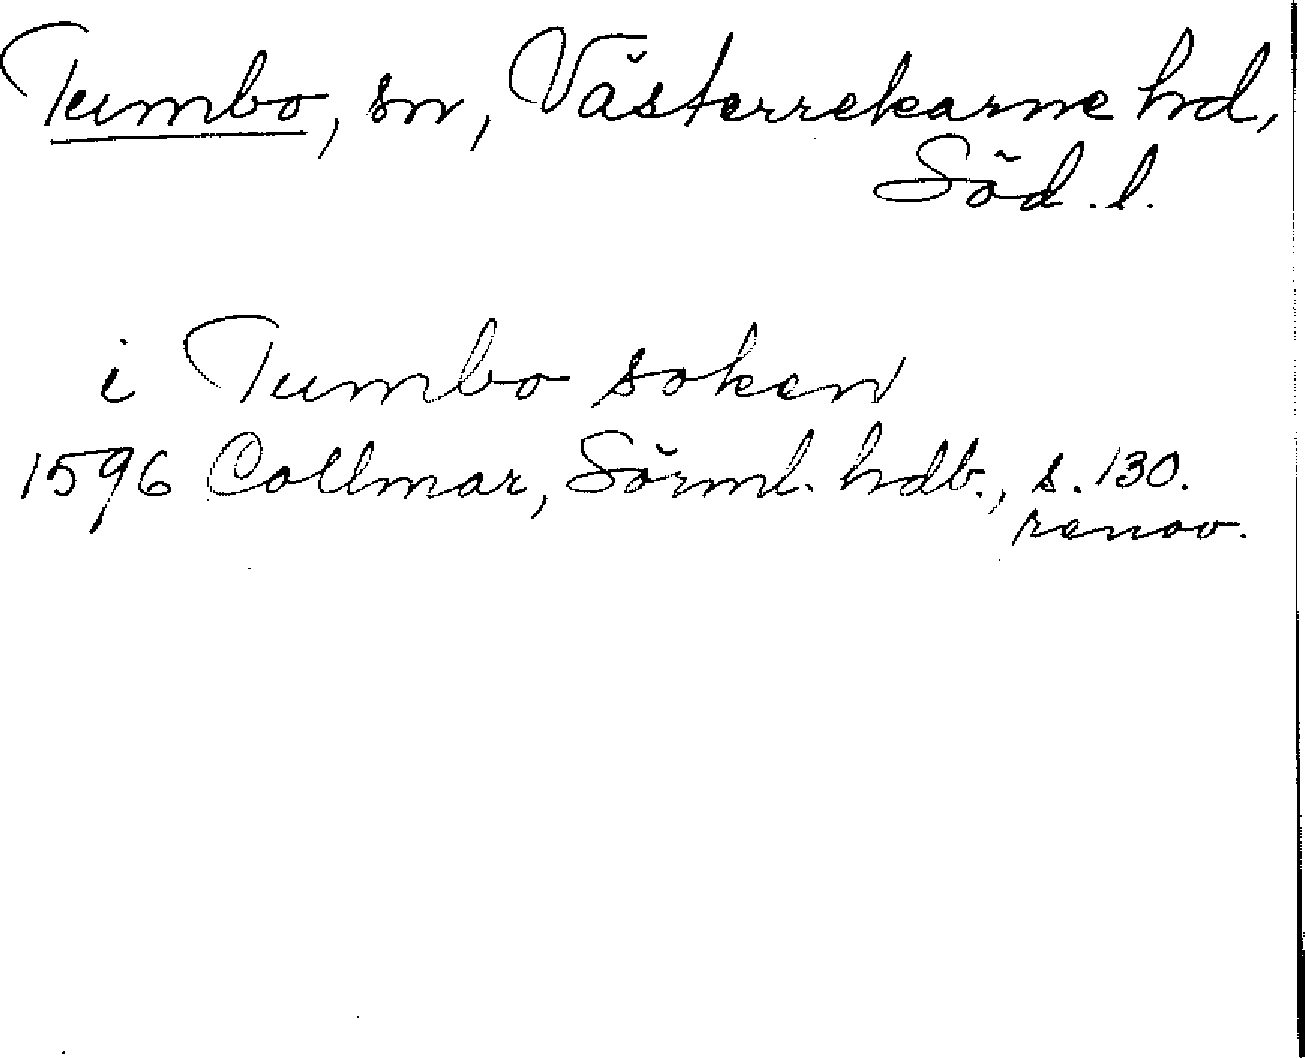 Tumbo, sn, Västerrekarne hd,
Söd. l.
i Tumbo soken
1596 Collmar, Sörml. hdb., s. 130.
renov.